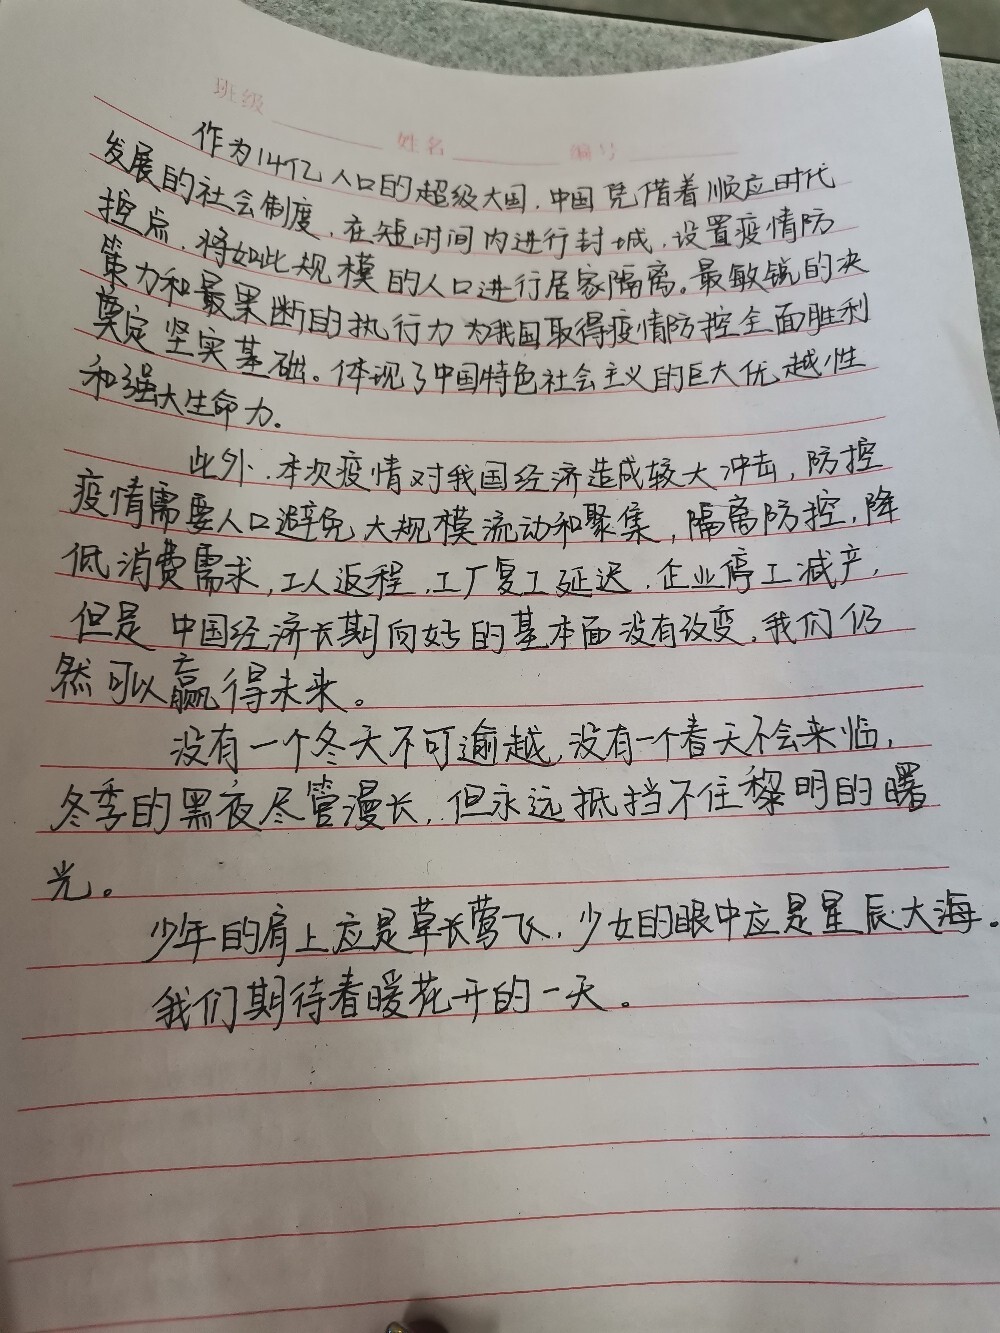 班级 姓名 编号
作为14亿人口的超级大国，中国凭借着顺应时代
发展的社会制度，在短时间内进行封城，设置疫情防
控点，将如此规模的人口进行居家隔离。最敏锐的决
策力和最果断的执行力为我国取得疫情防控全面胜利
奠定坚实基础。体现了中国特色社会主义的巨大优越性
和强大生命力。
此外，本次疫情对我国经济造成较大冲击，防控
疫情需要人口避免大规模流动和聚集，隔离防控，降
低消费需求，工人返程，工厂复工延迟，企业停工减产，
但是中国经济长期向好的基本面没有改变，我们仍
然可以赢得未来。
没有一个冬天不可逾越，没有一个春天不会来临，
冬季的黑夜尽管漫长，但永远抵挡不住黎明的曙
光。
少年的肩上应是草长莺飞，少女的眼中应是星辰大海。
我们期待春暖花开的一天。